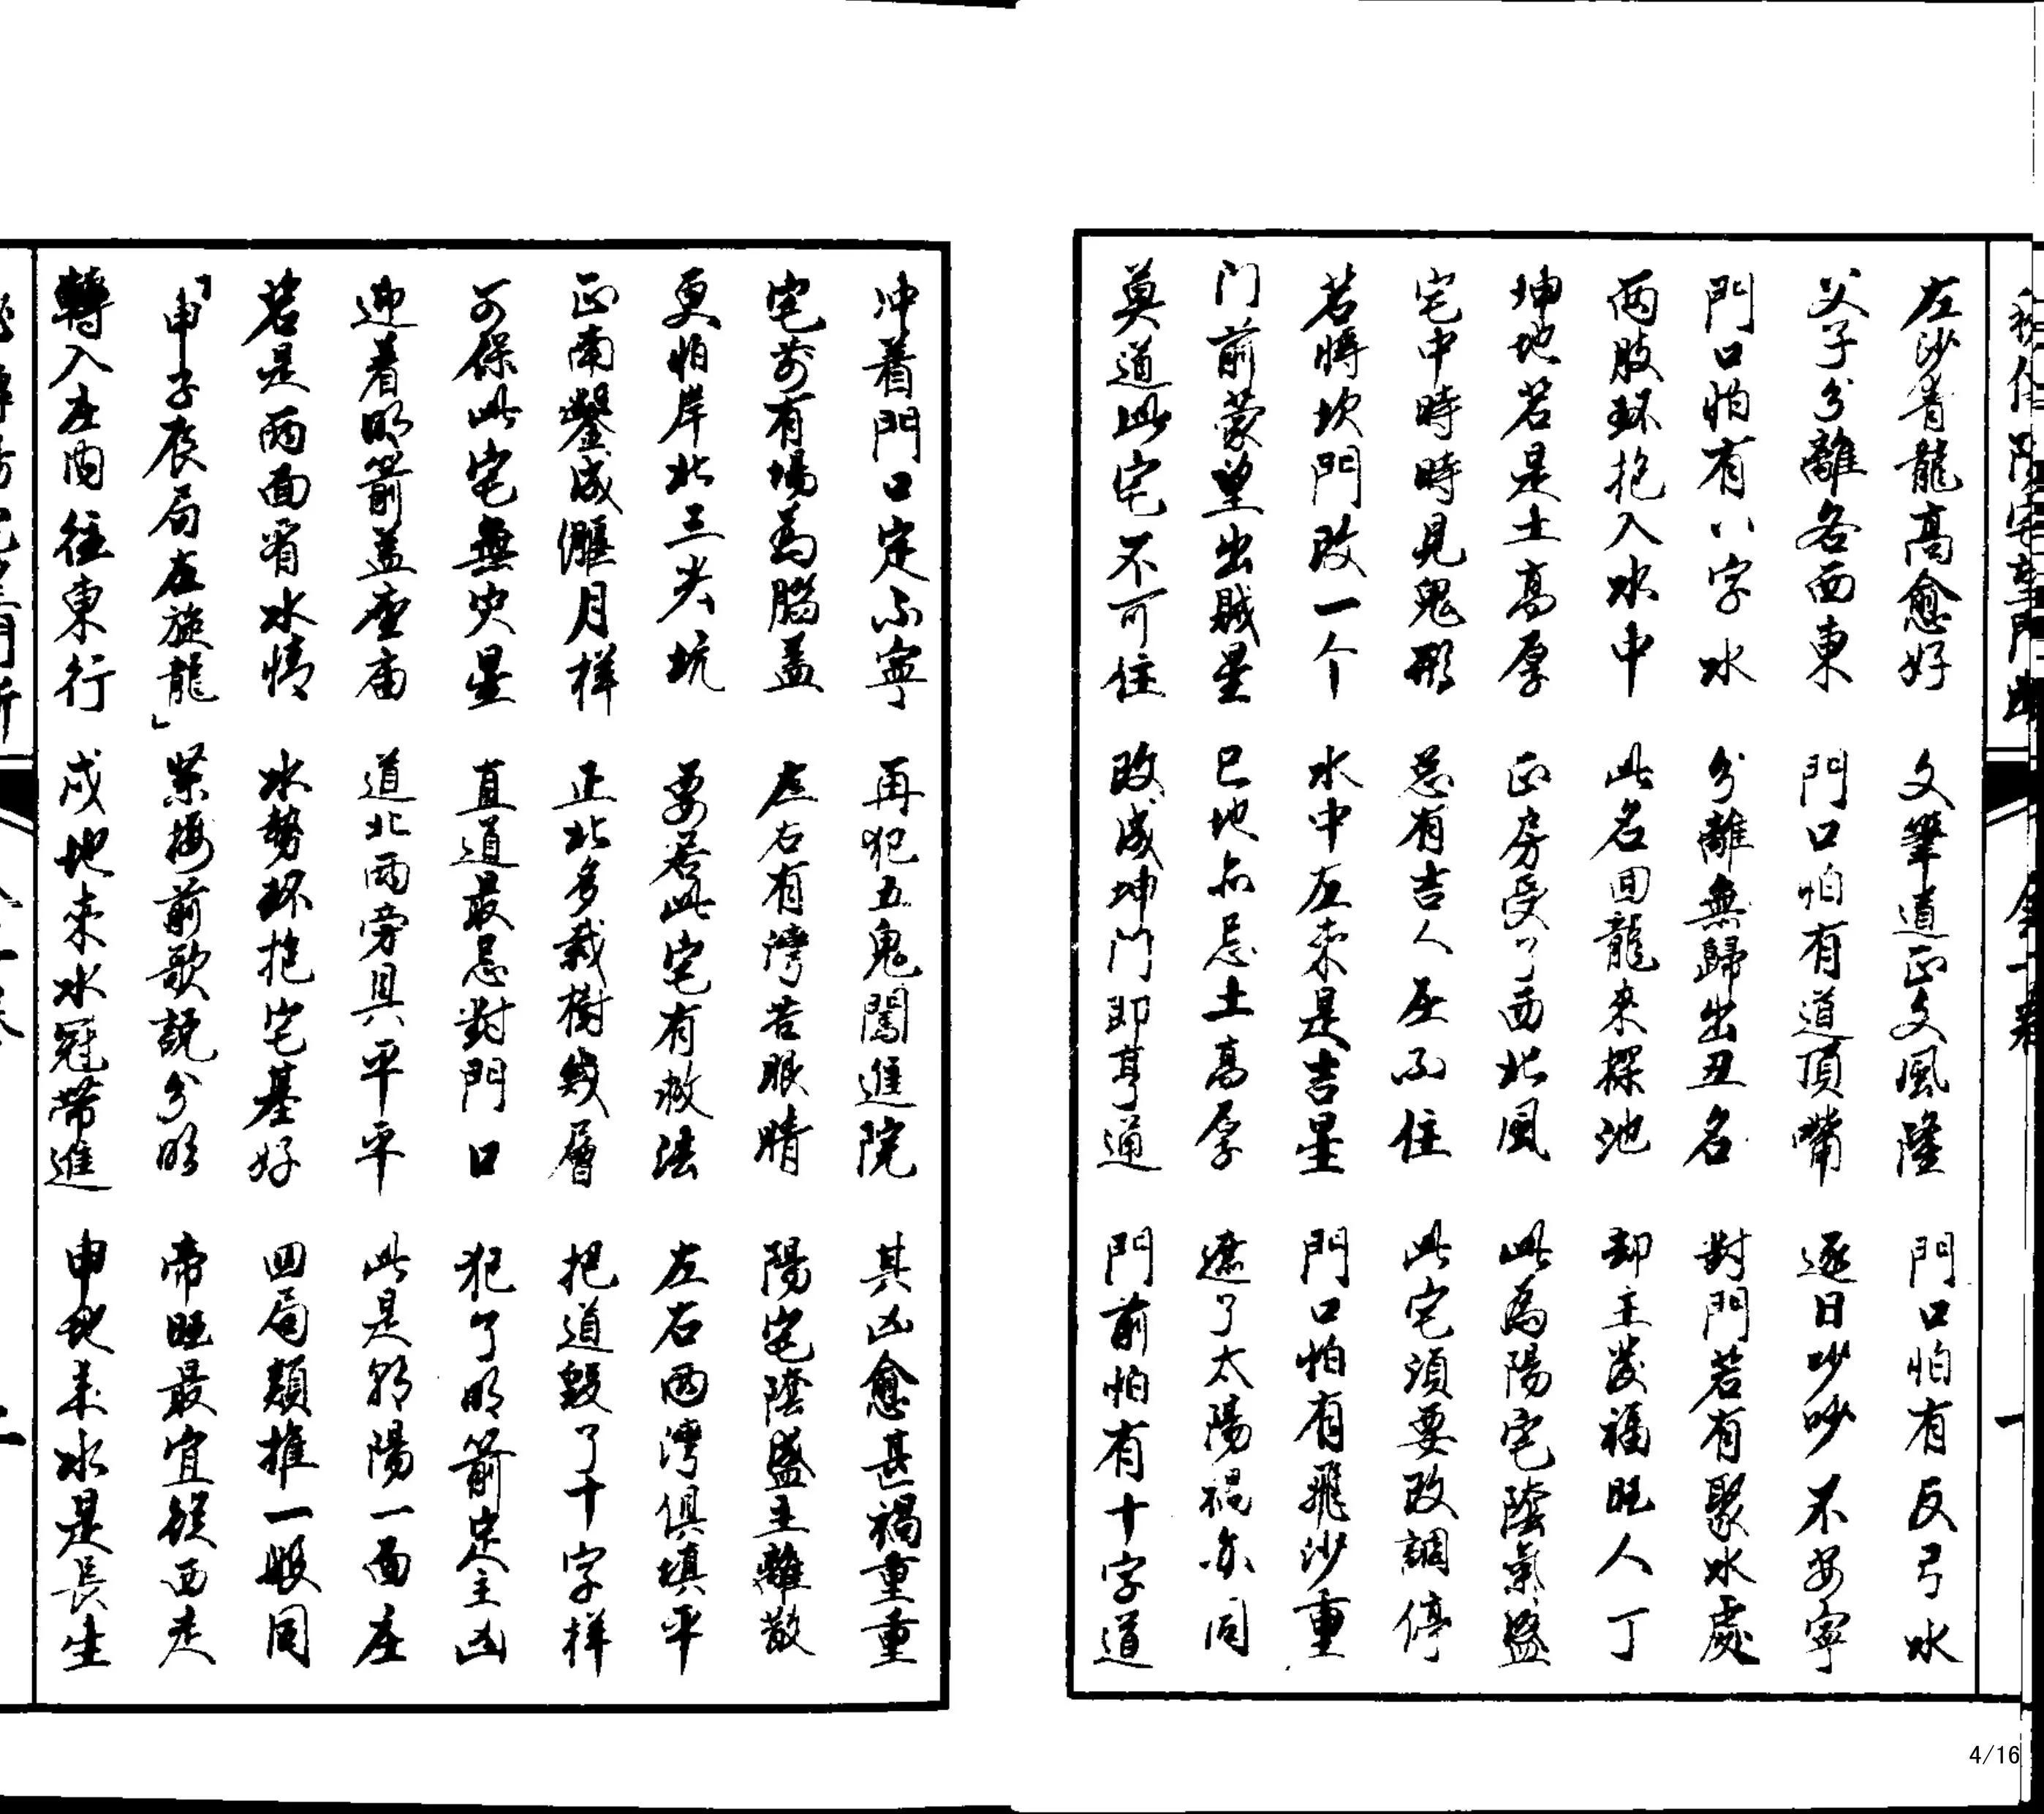 左沙青龍高愈好 文筆道正文風隆 門口怕有反弓水
父子分離各西東 門口怕有道頂嘴 逐日吵吵不安寧
門口怕有八字水 分離無歸出丑名 對門若有聚水處
兩肢环抱入水中 此名回龍來探池 却主發福旺人丁
坤地若是土高厚 正房受了西北風 此為陽宅陰氣盛
宅中時時見鬼形 总有吉人在不住 此宅須要改調停
若將坎門改一个 水中左來是吉星 門口怕有飛沙重
门前蒙望出賊星 巳地亦忌土高厚 遮了太陽禍亦同
莫道此宅不可住 改成坤门即亨通 門前怕有十字道
冲着門口定不寧 再犯五鬼闖進院 其凶愈甚禍重重
宅前有場為腦盖 左右有灣若眼睛 陽宅陰盛主離散
更怕岸北三尖坑 要若此宅有救法 左右两灣俱填平
正南鑿成偃月样 正北多栽樹幾層 把道毀了十字样
可保此宅無灾星 直道最忌對門口 犯了明箭定主凶
迎着明箭盖座庙 道北兩旁具平平 此是朝陽一面在
若是兩面有水情 水勢环抱宅基好 四局類推一般同
「申子辰局左旋龍」 紧接前歌説分明 帝旺最宜從西走
轉入左南往東行 戍地來水冠带進 申地来水是長生
4/16